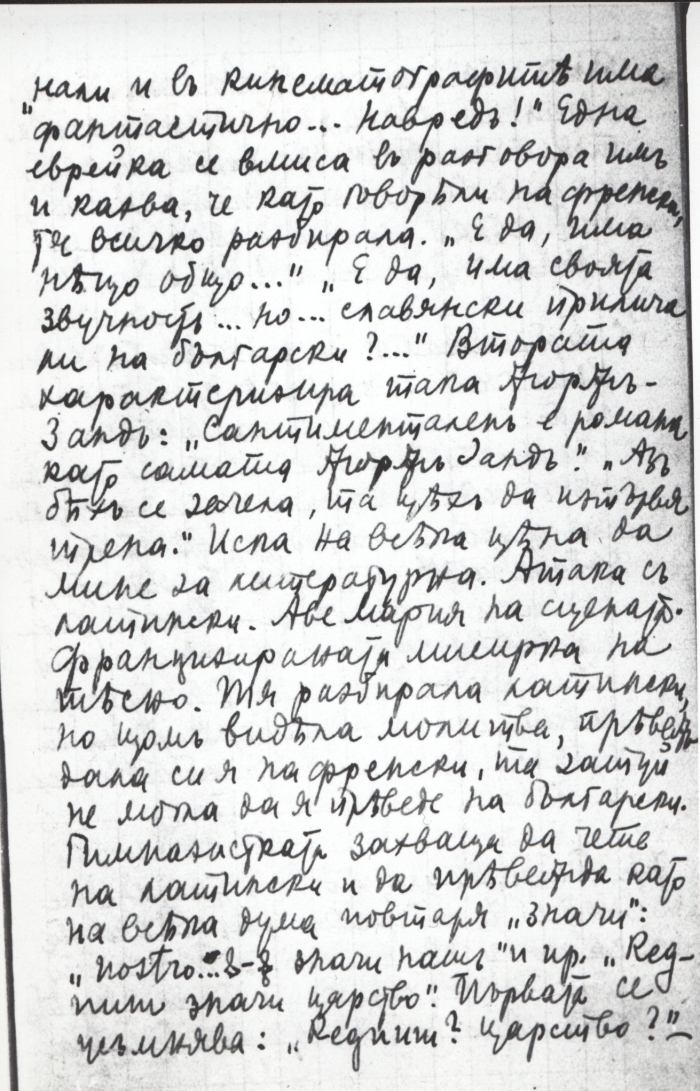 „нали и въ кинематографитѣ има
фантастично... Навредъ!" Една
еврейка се вмиса въ разговора имъ
и казва, че като говорѣли на френски,
тя всичко разбирала. „Е да, има
нѣщо общо..." „Е да, има своята
звучность... но... славянски прилича
ли на български?..." Втората
характеризира така Жоржъ-
Зандъ: „Сантименталенъ е романа
като самата Жоржъ Зандъ." „Азъ
бѣхъ се зачела, та щѣхъ да изтървя
трена." Иска на всѣка цѣна да
мине за литературна. Атака съ
латински. Аве Мария на сцената.
Французираната мисирка на
тѣсно. Тя разбирала латински,
но щомъ видѣла молитва, прѣвеж-
дала си я на френски, та затуй
не могла да я прѣведе на български.
Гимназистката захваща да чете
на латински и да прѣвежда като
на всѣка дума повтаря „значи":
„nostro... значи нашъ" и пр. „Reg-
num значи царство". Първата се
усъмнява: „Regnum? Царство?"